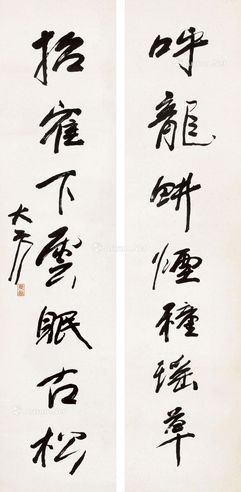 呼龍耕煙種瑤草
招隺下雲眠古松
大千